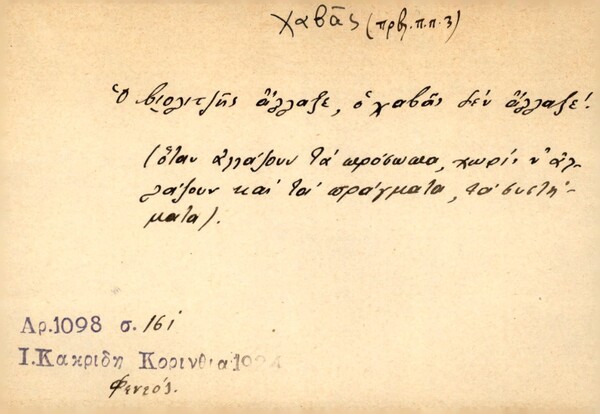 χαβᾶς (πρβ. π.π. 3)
Ὁ βιολιτζῆς ἄλλαξε, ὁ χαβᾶς δέν ἄλλαξε!
(ὅταν ἀλλάζουν τά πρόσωπα, χωρίς ν' ἀλ-
λάζουν καί τά πράγματα, τά συστή-
ματα).
Αρ.1098 σ. 161
Ι.Κακριδη Κορινθια
Φενεός.